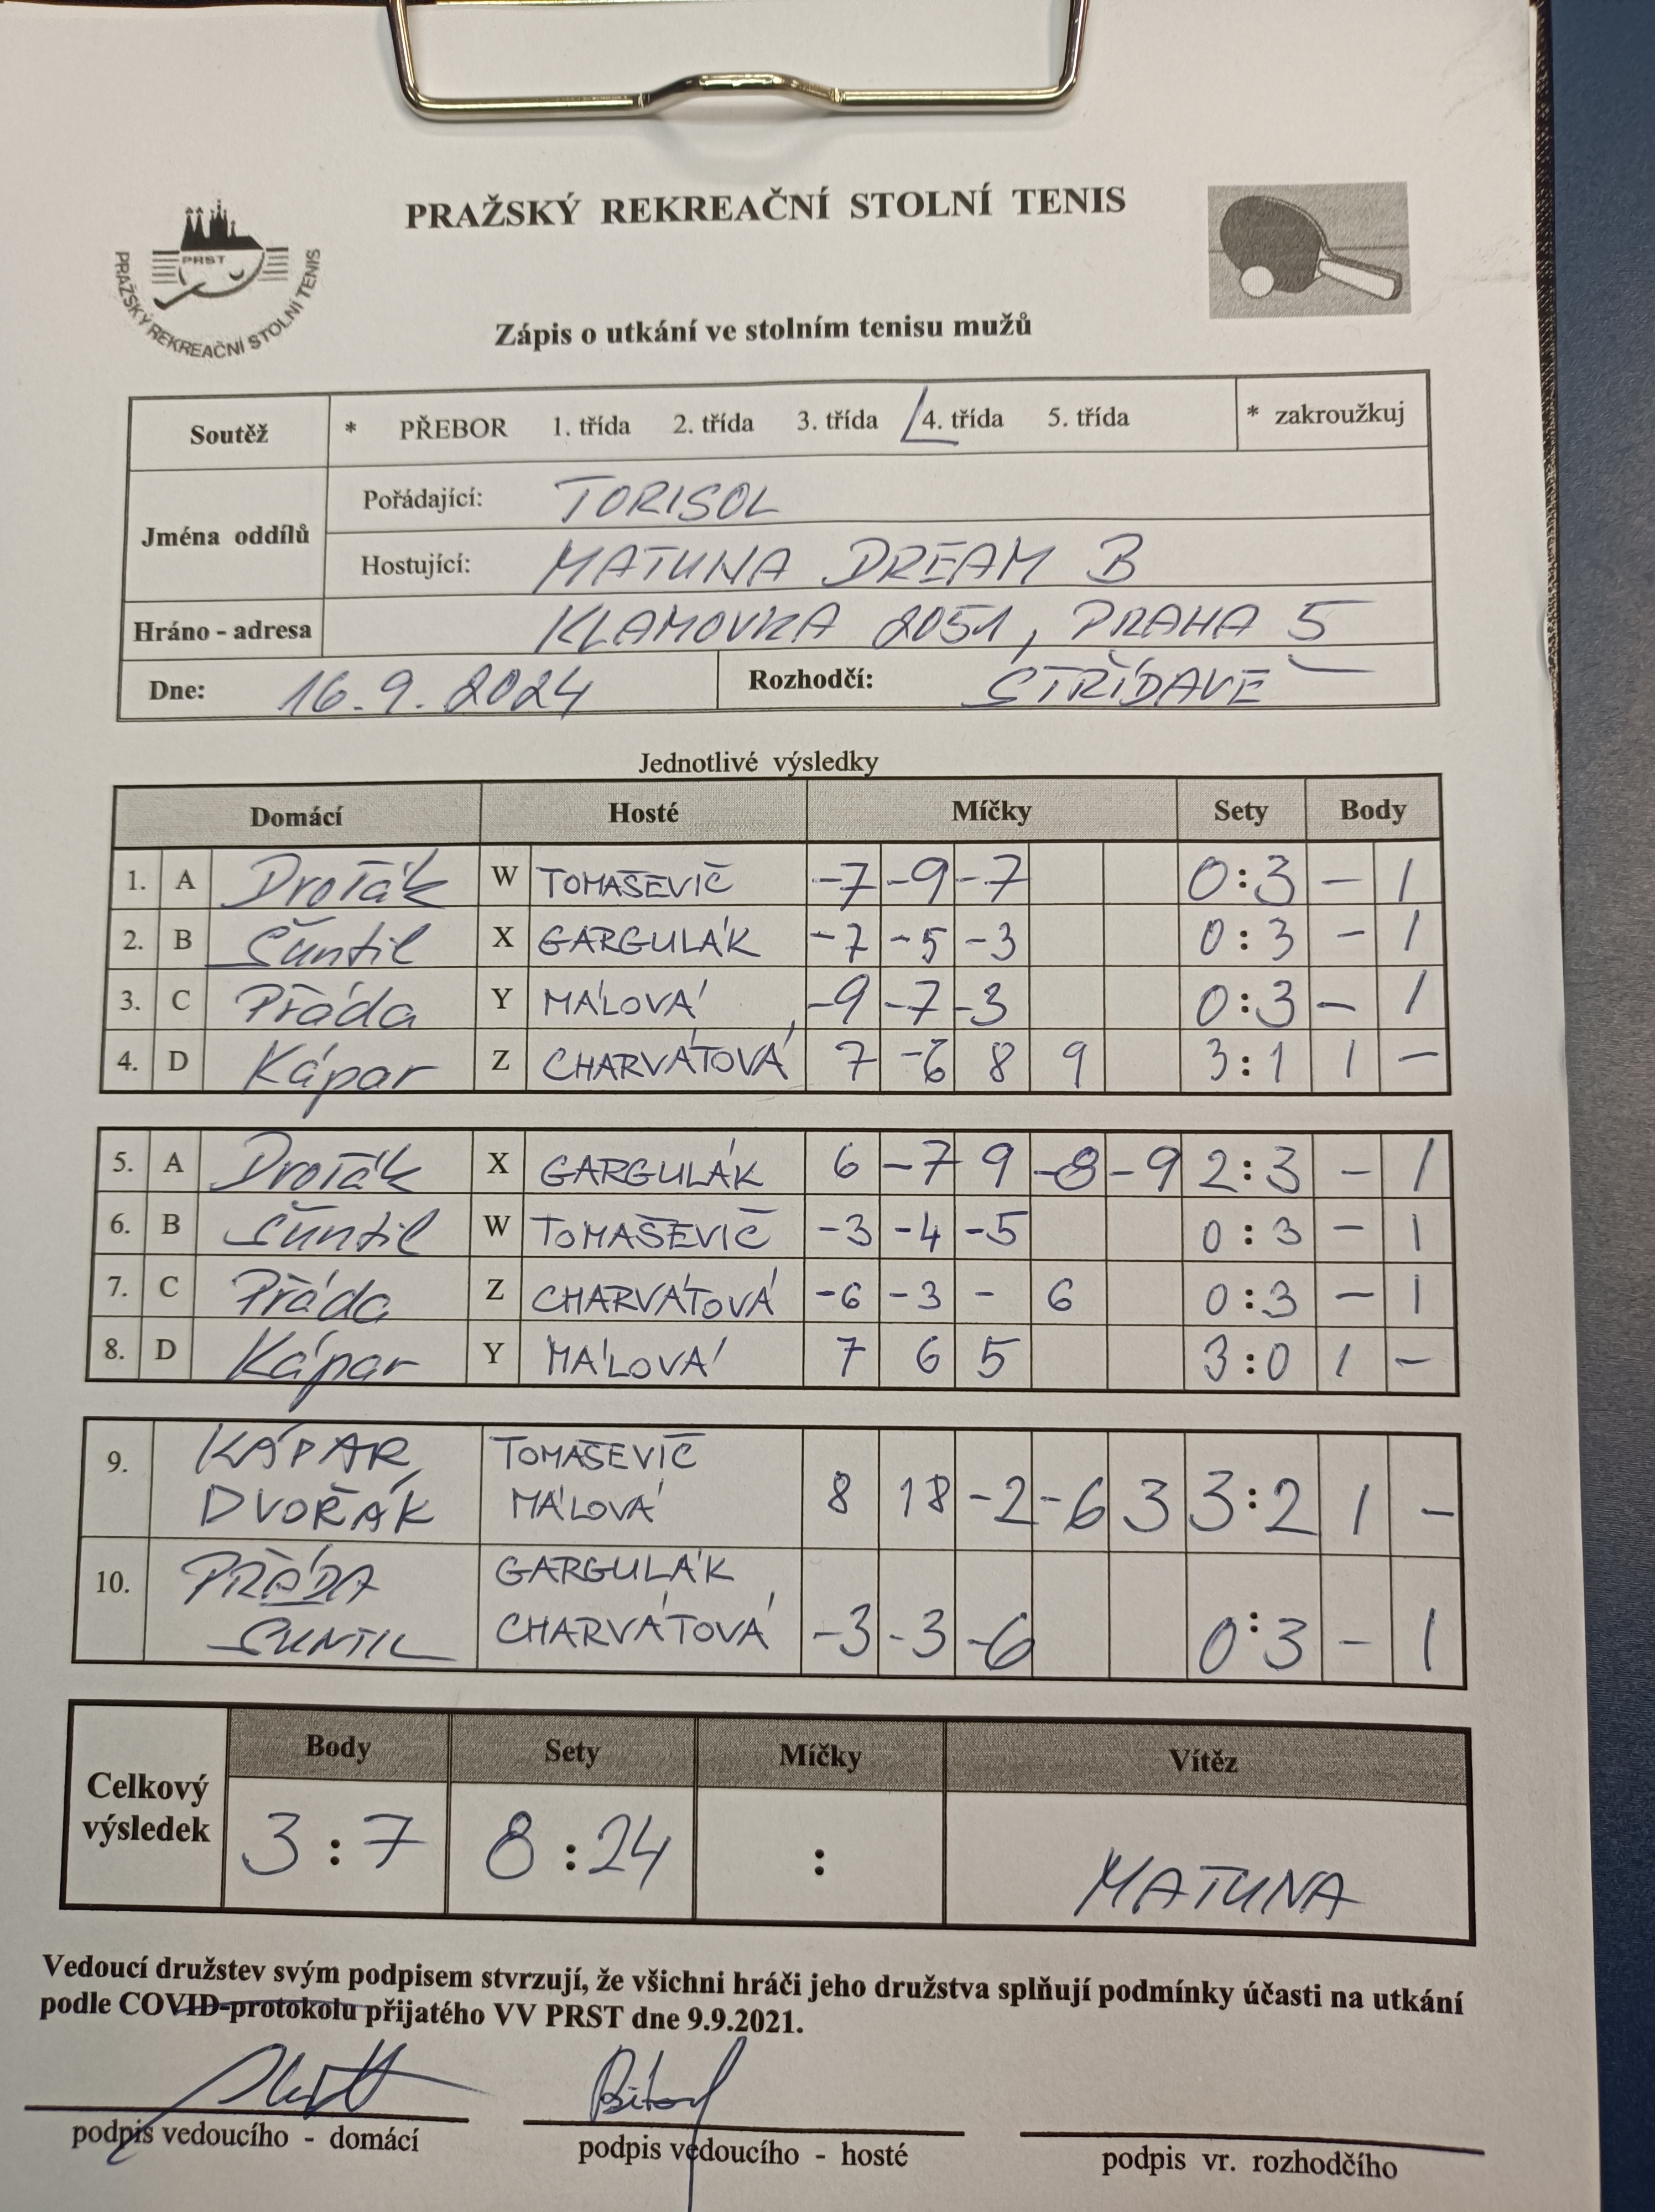 PRAŽSKÝ REKREAČNÍ STOLNÍ TENIS
PRST
PRAŽSKÝ REKREAČNÍ STOLNÍ TENIS
Zápis o utkání ve stolním tenisu mužů
Soutěž * PŘEBOR 1. třída 2. třída 3. třída 4. třída 5. třída * zakroužkuj
Jména oddílů
Pořádající: TORISOL
Hostující: MATUNA DREAM B
Hráno - adresa KLAMOVKA 2051, PRAHA 5
Dne: 16.9.2024 Rozhodčí: STŘÍDAVĚ
Jednotlivé výsledky
Domácí Hosté Míčky Sety Body
1. A Dvořák W TOMAŠEVIČ -7 -9 -7 0:3 - 1
2. B Šuntil X GARGULÁK -7 -5 -3 0:3 - 1
3. C Přáda Y MÁLOVÁ -9 -7 -3 0:3 - 1
4. D Kápar Z CHARVÁTOVÁ 7 -6 8 9 3:1 1 -
5. A Dvořák X GARGULÁK 6 -7 9 -8 -9 2:3 - 1
6. B Šuntil W TOMAŠEVIČ -3 -4 -5 0:3 - 1
7. C Přáda Z CHARVÁTOVÁ -6 -3 - 6 0:3 - 1
8. D Kápar Y MÁLOVÁ 7 6 5 3:0 1 -
9. KÁPAR TOMAŠEVIČ
DVOŘÁK MÁLOVÁ 8 18 -2 -6 3 3:2 1 -
10. PŘÁDA GARGULÁK
SUNTIL CHARVÁTOVÁ -3 -3 -6 0:3 - 1
Celkový výsledek
Body Sety Míčky Vítěz
3:7 8:24 : MATUNA
Vedoucí družstev svým podpisem stvrzují, že všichni hráči jeho družstva splňují podmínky účasti na utkání
podle COVID-protokolu přijatého VV PRST dne 9.9.2021.
podpis vedoucího - domácí podpis vedoucího - hosté podpis vr. rozhodčího